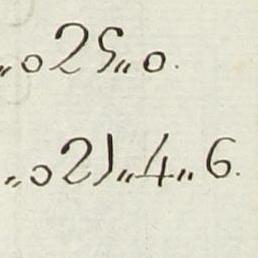 „025„0.
„021„4„6.